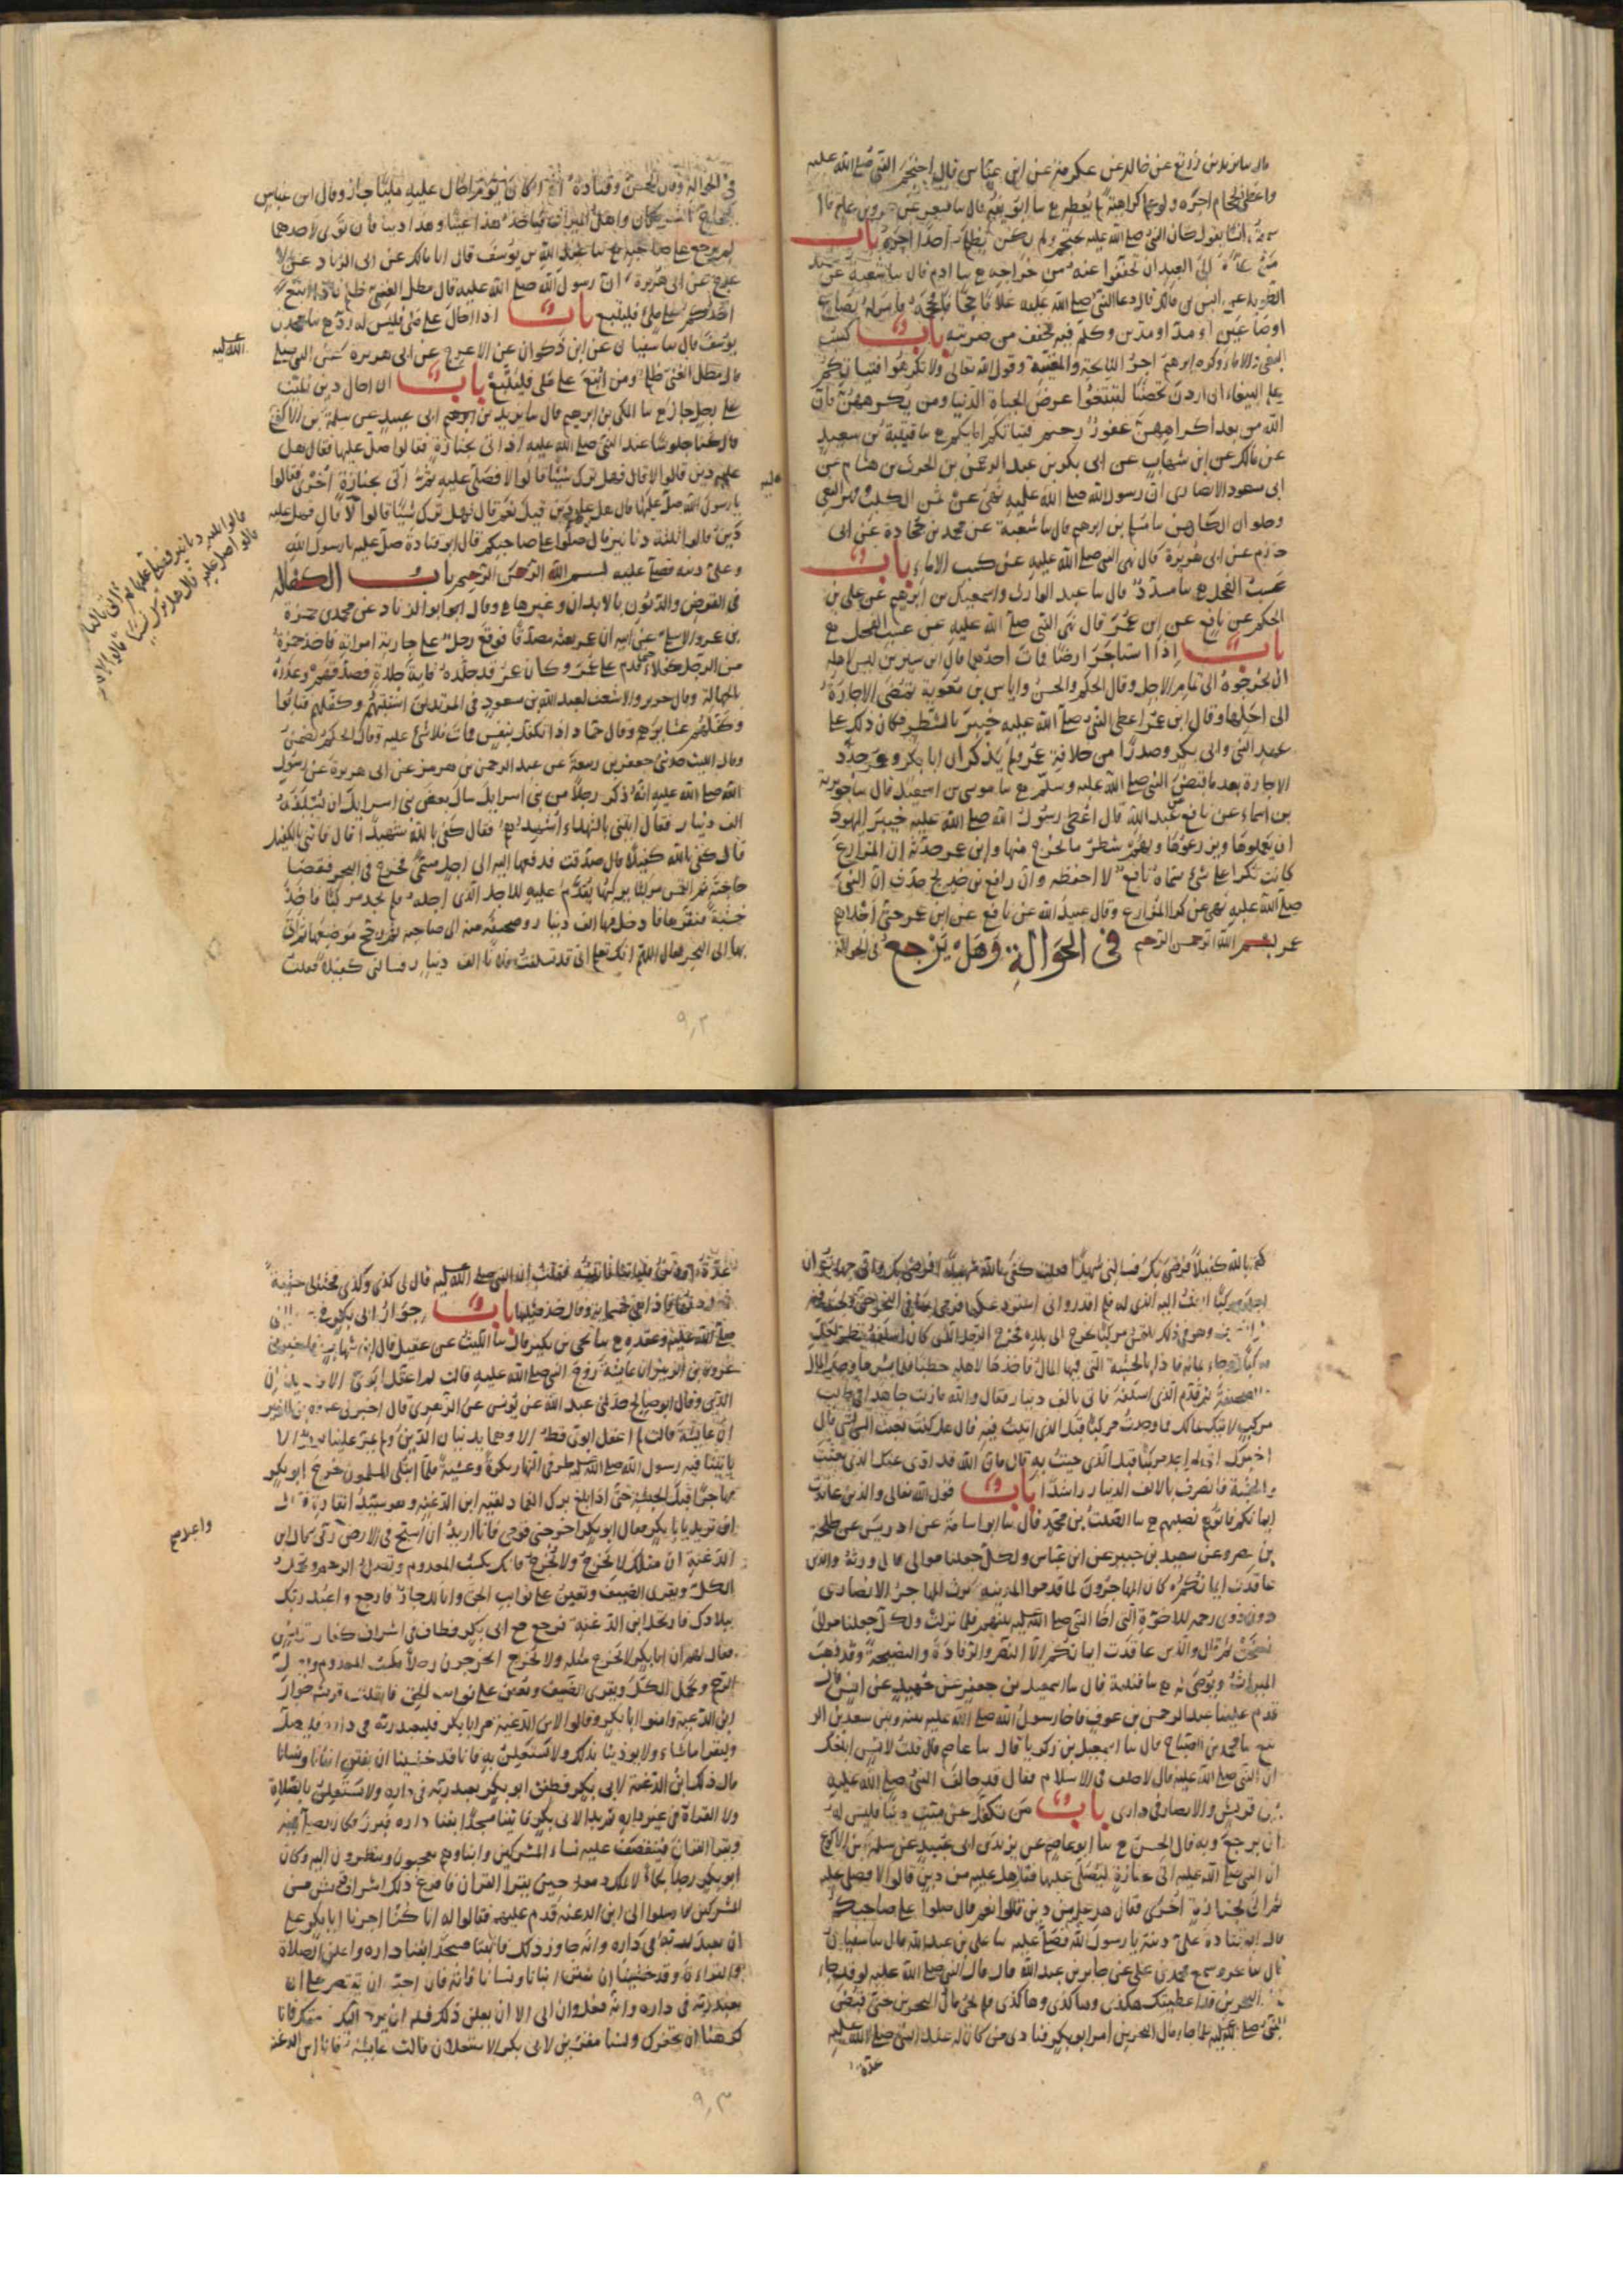 يزيد بن زريع عن خالد عن عكرمة عن ابن عباس قال احتجم النبي صلى الله عليه
واعطى الحجام اجره ولو علم كراهية لم يعطه ع سا ابو نعيم قال سا مسعر عن عمرو بن عامر قال
سمعت انسا يقول كان النبي صلى الله عليه يحتجم ولم يكن يظلم احدا اجره باب
من كلم موالي العبد ان يخففوا عنه من خراجه ع سا ادم قال سا شعبة عن حميد
الطويل عن انس بن مالك قال دعا النبي صلى الله عليه غلاما حجاما فحجمه وامر له بصاع
او صاعين او مد او مدين وكلم فيه فخفف من ضريبته باب كسب
البغي والاماء وكره ابرهيم اجر النائحة والمغنية وقول الله تعالى ولا تكرهوا فتياتكم
على البغاء ان اردن تحصنا لتبتغوا عرض الحياة الدنيا ومن يكرههن فان
الله من بعد اكراههن غفور رحيم فتياتكم اماءكم ع سا قتيبة بن سعيد
عن مالك عن ابن شهاب عن ابي بكر بن عبد الرحمن بن الحرث بن هشام عن
ابي مسعود الانصاري ان رسول الله صلى الله عليه نهى عن ثمن الكلب ومهر البغي
وحلوان الكاهن سا مسلم بن ابرهيم قال سا شعبة عن محمد بن جحادة عن ابي
حازم عن ابي هريرة قال نهى النبي صلى الله عليه عن كسب الاماء باب
عسب الفحل ع سا مسدد قال سا عبد الوارث واسمعيل بن ابرهيم عن علي بن
الحكم عن نافع عن ابن عمر قال نهى النبي صلى الله عليه عن عسب الفحل ع
باب اذا استاجر ارضا فمات احدهما قال ابن سيرين ليس لاهله
ان يخرجوه الى تمام الاجل وقال الحكم والحسن واياس بن معوية تمضى الاجارة
الى اجلها وقال ابن عمر اعطى النبي صلى الله عليه خيبر بالشطر فكان ذلك على
عهد النبي وابي بكر وصدرا من خلافة عمر ولم يذكر ان ابا بكر وعمر جدد
الاجارة بعد ما قبض النبي صلى الله عليه وسلم ع سا موسى بن اسمعيل قال سا جويرية
بن اسماء عن نافع عن عبد الله قال اعطى رسول الله صلى الله عليه خيبر اليهود
ان يعملوها ويزرعوها ولهم شطر ما يخرج منها وان ابن عمر حدثه ان المزارع
كانت تكرا على شئ سماه نافع لا احفظه وان رافع بن خديج حدث ان النبي
صلى الله عليه نهى عن كرا المزارع وقال عبيد الله عن نافع عن ابن عمر حتى اجلاهم
عمر بسم الله الرحمن الرحيم في الحوالة وهل يرجع في الحوالة
في الحوالة وقال الحسن وقتادة اذا كان يوم احال عليه مليا جاز وقال ابن عباس
يتخارج الشريكان واهل الميراث فياخذ هذا عينا وهذا دينا فان توي لاحدهما
لم يرجع على صاحبه ع سا عبد الله بن يوسف قال انا مالك عن ابي الزناد عن الا
عرج عن ابي هريرة ان رسول الله صلى الله عليه قال مطل الغني ظلم فاذا اتبع
احدكم على ملي فليتبع باب اذا احال على ملي فليس له رد ع سا محمد بن
يوسف قال سا سفيان عن ابن ذكوان عن الاعرج عن ابي هريرة عن النبي صلى
الله عليه
قال مطل الغني ظلم ومن اتبع على ملي فليتبع باب ان احال دين الميت
على رجل جاز ع سا المكي بن ابرهيم قال سا يزيد بن ابي عبيد عن سلمة بن الاكوع
قال كنا جلوسا عند النبي صلى الله عليه اذ اتي بجنازة فقالوا صل عليها فقال هل
عليه دين قالوا لا قال فهل ترك شيئا قالوا لا فصلى عليه ثم اتي بجنازة اخرى فقالوا
يا رسول الله صل عليها قال هل عليه دين قيل نعم قال فهل ترك شيئا قالوا لا قال فهل عليه
دين قالوا ثلثة دنانير قال صلوا على صاحبكم قال ابو قتادة صل عليه يا رسول الله
وعلي دينه فصلى عليه بسم الله الرحمن الرحيم باب الكفالة
في القرض والديون بالابدان وغيرها ع وقال ابو الزناد عن محمد بن حمزة
بن عمرو الاسلمي عن ابيه ان عمر بعثه مصدقا فوقع رجل على جارية امراته فاخذ حمزة
من الرجل كفلاء حتى قدم على عمر وكان عمر قد جلده مائة جلدة فصدقهم وعذره
بالجهالة وقال جرير والاشعث لعبد الله بن مسعود في المرتدين استتبهم وكفلهم فتابوا
وكفلهم عشايرهم وقال حماد اذا تكفل بنفس فمات فلا شئ عليه وقال الحكم يضمن
وقال الليث حدثني جعفر بن ربيعة عن عبد الرحمن بن هرمز عن ابي هريرة عن رسول
الله صلى الله عليه انه ذكر رجلا من بني اسرايل سال بعض بني اسرايل ان يسلفه
الف دينار فقال ائتني بالشهداء اشهدهم فقال كفى بالله شهيدا قال فاتني بالكفيل
قال كفى بالله كفيلا قال صدقت فدفعها اليه الى اجل مسمى فخرج في البحر فقضا
حاجته ثم التمس مركبا يركبها يقدم عليه للاجل الذي اجله فلم يجد مركبا فاخذ
خشبة فنقرها فادخل فيها الف دينار وصحيفة منه الى صاحبه ثم زجج موضعها ثم اتى
بها الى البحر فقال اللهم انك تعلم اني قد تسلفت فلانا الف دينار فسالني كفيلا فقلت
كفى بالله كفيلا فرضي بك فسالني شهيدا فقلت كفى بالله شهيدا فرضي بك واني جهدت ان
اجد مركبا ابعث اليه الذي له فلم اقدر واني استودعكها فرمى بها في البحر حتى ولجت فيه
ثم انصرف وهو في ذلك يلتمس مركبا يخرج الى بلده فخرج الرجل الذي كان اسلفه ينظر لعل
مركبا قد جاء بماله فاذا بالخشبة التي فيها المال فاخذها لاهله حطبا فلما نشرها وجد المال
والصحيفة ثم قدم الذي اسلفه فاتى بالف دينار فقال والله ما زلت جاهدا في طلب
مركب لاتيك بمالك فما وجدت مركبا قبل الذي اتيت فيه قال هل كنت بعثت الي بشئ قال
اخبرك اني لم اجد مركبا قبل الذي جيت به قال فان الله قد ادى عنك الذي بعثت
والخشبة فانصرف بالالف الدينار راشدا باب قول الله تعالى والذين عاقدت
ايمانكم فاتوهم نصيبهم ع سا الصلت بن محمد قال سا ابو اسامة عن ادريس عن طلحة
بن مصرف عن سعيد بن جبير عن ابن عباس ولكل جعلنا موالي قال ورثة والذين
عاقدت ايمانكم كان المهاجرون لما قدموا المدينة يرث المهاجر الانصاري
دون ذوي رحمه للاخوة التي اخا النبي صلى الله عليه بينهم فلما نزلت ولكل جعلنا موالي
نسخت ثم قال والذين عاقدت ايمانكم الا النصر والرفادة والنصيحة وقد ذهب
الميراث ويوصى له ع سا قتيبة قال سا اسمعيل بن جعفر عن حميد عن انس قال
قدم علينا عبد الرحمن بن عوف فاخا رسول الله صلى الله عليه بينه وبين سعد بن الر
بيع سا محمد بن الصباح قال سا اسمعيل بن زكريا قال سا عاصم قال قلت لانس ابلغك
ان النبي صلى الله عليه قال لا حلف في الاسلام فقال قد حالف النبي صلى الله عليه
بين قريش والانصار في داري باب من تكفل عن ميت دينا فليس له
ان يرجع وبه قال الحسن ع سا ابو عاصم عن يزيد بن ابي عبيد عن سلمة بن الاكوع
ان النبي صلى الله عليه اتي بجنازة ليصلي عليها فقال هل عليه من دين قالوا لا فصلى عليه
ثم اتي بجنازة اخرى فقال هل عليه من دين قالوا نعم قال صلوا على صاحبكم
قال ابو قتادة علي دينه يا رسول الله فصلى عليه سا علي بن عبد الله قال سا سفيان
قال سا عمرو سمع محمد بن علي عن جابر بن عبد الله قال قال النبي صلى الله عليه لو قد جاء
مال البحرين قد اعطيتك هكذى وهاكذى وهاكذى فلم يجئ مال البحرين حتى قبض
النبي صلى الله عليه فلما جاء مال البحرين امر ابو بكر فنادى من كان له عند النبي صلى الله عليه
عدة
عدة او دين فلياتنا فاتيته فقلت ان النبي صلى الله عليه قال لي كذى وكذى فحثى لي حثية
فعددتها فاذا هي خمسمائة وقال خذ مثليها باب جوار ابي بكر في
صلى الله عليه وعقده ع سا يحيى بن بكير قال سا الليث عن عقيل قال ابن شهاب فاخبرني
عروة بن الزبير ان عايشة زوج النبي صلى الله عليه قالت لم اعقل ابوي الا وهما يدينان
الدين وقال ابو صالح حدثني عبد الله عن يونس عن الزهري قال اخبرني عروة بن الزبير
ان عايشة قالت لم اعقل ابوي قط الا وهما يدينان الدين ولم يمر علينا يوم الا
ياتينا فيه رسول الله صلى الله عليه طرفي النهار بكرة وعشية فلما ابتلي المسلمون خرج ابو بكر
مهاجرا قبل الحبشة حتى اذا بلغ برك الغماد لقيه ابن الدغنة وهو سيد القارة
اين تريد يا با بكر فقال ابو بكر اخرجني قومي فانا اريد ان اسيح في الارض
الدغنة ان مثلك لا يخرج ولا يخرج فانك تكسب المعدوم وتصل الرحم وتحمل
الكل وتقري الضيف وتعين على نوايب الحق وانا لك جار فارجع واعبد ربك
ببلادك فارتحل ابن الدغنة فرجع مع ابي بكر فطاف في اشراف كفار قريش
فقال لهم ان ابا بكر لا يخرج مثله ولا يخرج اتخرجون رجلا يكسب المعدوم ويصل
الرحم ويحمل الكل ويقري الضيف ويعين على نوايب الحق فانفذت قريش جوار
ابن الدغنة وامنوا ابا بكر وقالوا لابن الدغنة مر ابا بكر فليعبد ربه في داره فليصل
وليقرا ما شاء ولا يوذينا بذلك ولا يستعلن به فانا قد خشينا ان يفتن ابنانا ونسانا
قال ذلك ابن الدغنة لابي بكر فطفق ابو بكر يعبد ربه في داره ولا يستعلن بالصلاة
ولا القراة في غير داره ثم بدا لابي بكر فابتنا مسجدا بفنا داره وبرز فكان يصلي فيه
ويقرا القران فيتقصف عليه نساء المشركين وابناوهم يعجبون وينظرون اليه وكان
ابو بكر رجلا بكاء لا يملك دمعه حين يقرا القران فافزع ذلك اشراف قريش من
المشركين فارسلوا الى ابن الدغنة فقدم عليهم فقالوا له انا كنا اجرنا ابا بكر على
ان يعبد ربه في داره وانه جاوز ذلك فابتنا مسجدا بفنا داره واعلن الصلاة
والقراءة وقد خشينا ان يفتن ابنانا ونسانا فاته فان احب ان يقتصر على ان
يعبد ربه في داره وانه فعل وان ابى الا ان يعلن ذلك فسله ان يرد اليك ذمتك فانا
كرهنا ان نخفرك ولسنا مقرين لابي بكر الاستعلان قالت عايشة فاتا ابن الدغنة